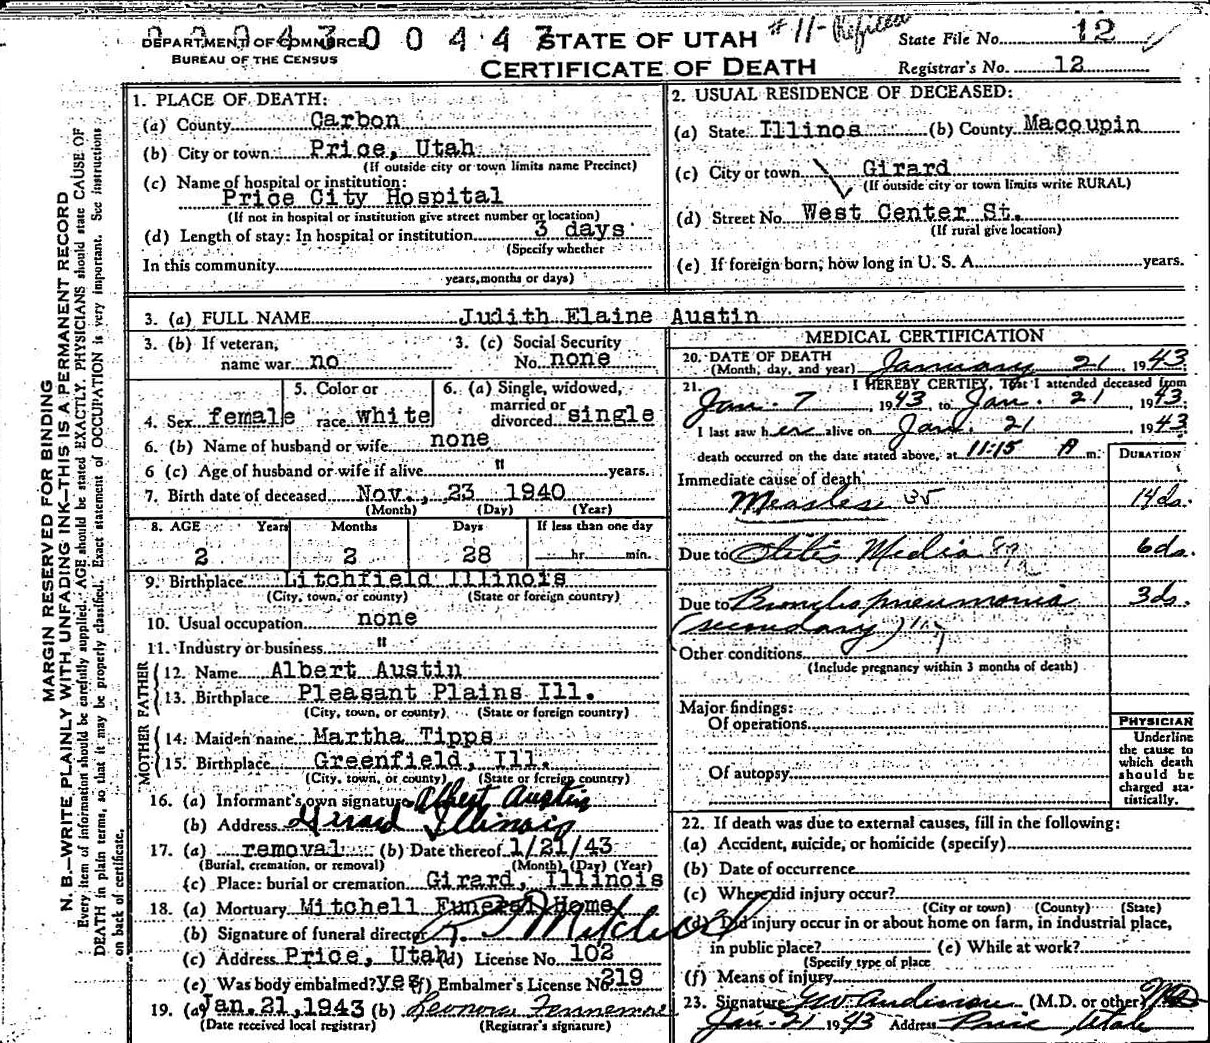 DEPARTMENT OF COMMERCE
BUREAU OF THE CENSUS
0 0 4 4
STATE OF UTAH
CERTIFICATE OF DEATH
# 11-
State File No. 12
Registrar's No. 12
MARGIN RESERVED FOR BINDING
N. B.—WRITE PLAINLY WITH UNFADING INK—THIS IS A PERMANENT RECORD
Every item of information should be carefully supplied. AGE should be stated EXACTLY. PHYSICIANS should state CAUSE OF
DEATH in plain terms, so that it may be properly classified. Exact statement of OCCUPATION is very important. See instructions
on back of certificate.
1. PLACE OF DEATH:
(a) County Carbon
(b) City or town Price, Utah
(If outside city or town limits name Precinct)
(c) Name of hospital or institution:
Price City Hospital
(If not in hospital or institution give street number or location)
(d) Length of stay: In hospital or institution 3 days
(Specify whether
In this community
years, months or days)
2. USUAL RESIDENCE OF DECEASED:
(a) State Illinos (b) County Macoupin
(c) City or town Girard
(If outside city or town limits write RURAL)
(d) Street No. West Center St.
(If rural give location)
(e) If foreign born, how long in U. S. A. years.
3. (a) FULL NAME Judith Elaine Austin
3. (b) If veteran,
name war no
3. (c) Social Security
No. none
4. Sex female
5. Color or
race white
6. (a) Single, widowed,
married or
divorced single
6. (b) Name of husband or wife none
6 (c) Age of husband or wife if alive " years.
7. Birth date of deceased Nov., 23 1940
(Month) (Day) (Year)
8. AGE Years Months Days If less than one day
2 2 28 hr. min.
9. Birthplace Litchfield Illinois
(City, town, or county) (State or foreign country)
10. Usual occupation none
11. Industry or business "
FATHER
12. Name Albert Austin
13. Birthplace Pleasant Plains Ill.
(City, town, or county) (State or foreign country)
MOTHER
14. Maiden name Martha Tipps
15. Birthplace Greenfield, Ill.
(City, town, or county) (State or foreign country)
16. (a) Informant's own signature Albert Austin
(b) Address Girard Illinois
17. (a) removal (b) Date thereof 1/21/43
(Burial, cremation, or removal) (Month) (Day) (Year)
(c) Place: burial or cremation Girard, Illinois
18. (a) Mortuary Mitchell Funeral Home
(b) Signature of funeral director Mitchell
(c) Address Price, Utah (d) License No. 102
(e) Was body embalmed? yes (f) Embalmer's License No. 219
19. (a) Jan. 21, 1943 (b) Leonora
(Date received local registrar) (Registrar's signature)
MEDICAL CERTIFICATION
20. DATE OF DEATH
(Month, day, and year) January 21, 1943.
21. I HEREBY CERTIFY, That I attended deceased from
Jan. 7, 1943, to Jan. 21, 1943.
I last saw her alive on Jan. 21 1943
death occurred on the date stated above, at 11:15 A m.
DURATION
Immediate cause of death
Measles 35 14 ds.
Due to Otitis Media 6 ds.
Due to Bronchopneumonia 3 ds.
(secondary)
Other conditions
(Include pregnancy within 3 months of death)
Major findings:
Of operations
Of autopsy
PHYSICIAN
Underline
the cause to
which death
should be
charged sta-
tistically.
22. If death was due to external causes, fill in the following:
(a) Accident, suicide, or homicide (specify)
(b) Date of occurrence
(c) Where did injury occur?
(City or town) (County) (State)
(d) Did injury occur in or about home on farm, in industrial place,
in public place? (e) While at work?
(Specify type of place
(f) Means of injury
23. Signature (M.D. or other) MD
Jan-21 1943 Address Price Utah